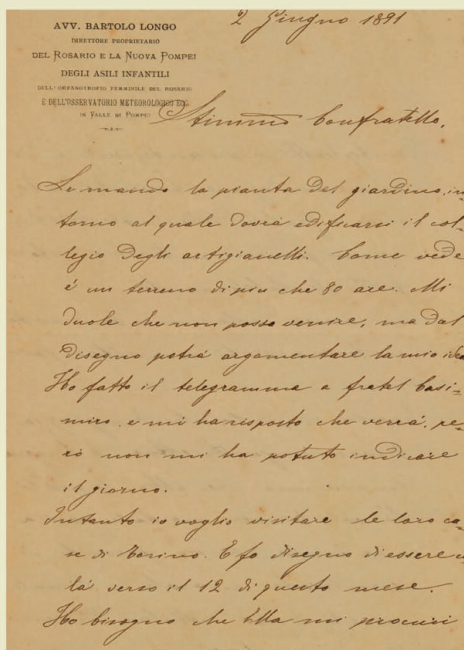 AVV. BARTOLO LONGO
DIRETTORE PROPRIETARIO
DEL ROSARIO E LA NUOVA POMPEI
DEGLI ASILI INFANTILI
DELL'ORFANOTROFIO FEMMINILE DEL ROSARIO
E DELL'OSSERVATORIO METEOROLOGICO ECC.
IN VALLE DI POMPEI
2 Giugno 1891
Stimmo Confratello,
Le mando la pianta del giardino, in-
torno al quale dovrà edificarsi il col-
legio degli artigianelli. Come vede
è un terreno di più che 80 are. Mi
duole che non posso venire, ma dal
disegno potrà argomentare la mio idea
Ho fatto il telegramma a fratel Casi-
miro, e mi ha risposto che verrà, pe-
rò non mi ha potuto indicare
il giorno.
Intanto io voglio visitare le loro ca-
se di Torino. E fo disegno di essere
là verso il 12 di questo mese.
Ho bisogno che Ella mi procuri